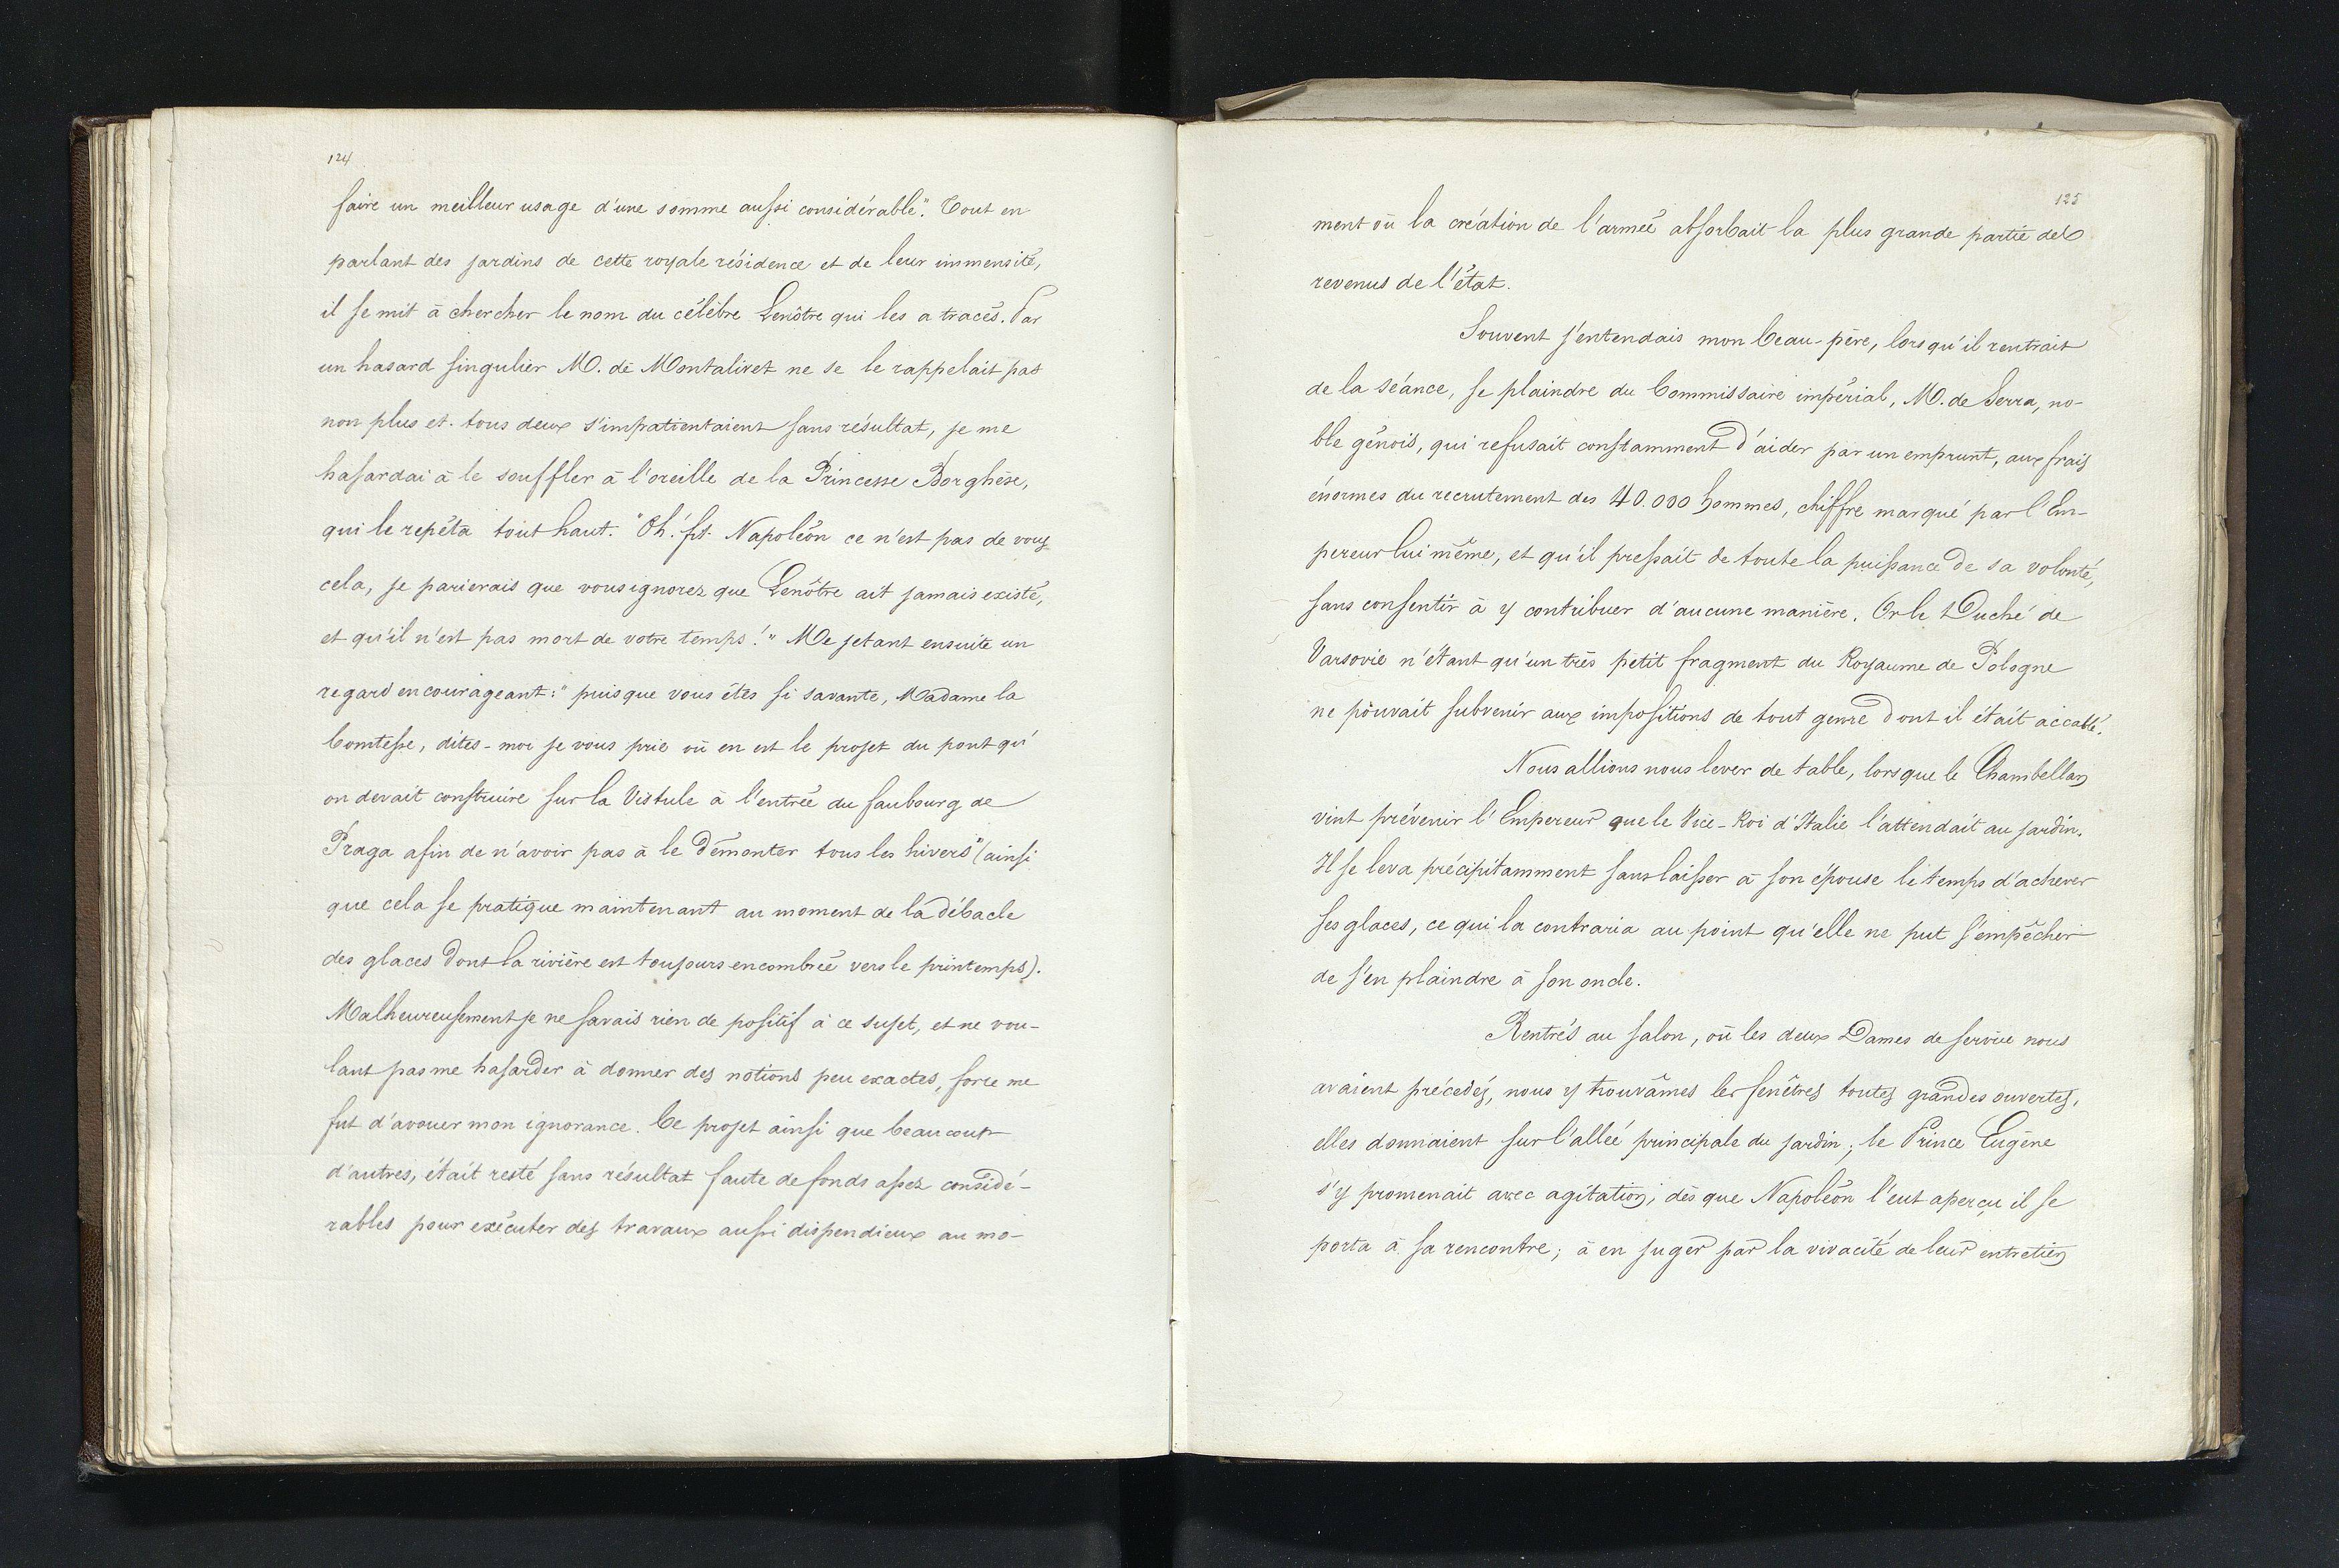 124
faire un meilleur usage d'une somme aussi considérable". Tout en
parlant des jardins de cette royale résidence et de leur immensité,
il se mit à chercher le nom du célèbre Lenôtre qui les a tracés. Par
un hasard singulier M. de Montalivet ne se le rappelait pas
non plus et tous deux s'impatientaient sans résultat, je me
hasardai à le souffler à l'oreille de la Princesse Borghèse,
qui le repéta tout haut. "Oh! fit Napoléon ce n'est pas de vous
cela, je parierais que vous ignorez que Lenôtre ait jamais existé,
et qu'il n'est pas mort de votre temps!" Me jetant ensuite un
regard encourageant: "puisque vous êtes si savante, Madame la
Comtesse, dites-moi je vous prie où en est le projet du pont qu'
on devait construire sur la Vistule à l'entrée du faubourg de
Praga afin de n'avoir pas à le démonter tous les hivers" (ainsi
que cela se pratique maintenant au moment de la débacle
des glaces dont la rivière est toujours encombrée vers le printemps).
Malheureusement je ne savais rien de positif à ce sujet, et ne vou-
lant pas me hasarder à donner des notions peu exactes, force me
fut d'avouer mon ignorance. Ce projet ainsi que beaucoup
d'autres, était resté sans résultat faute de fonds assez considé-
rables pour exécuter des travaux aussi dispendieux au mo-
125
ment où la création de l'armée absorbait la plus grande partie des
revenus de l'état.
Souvent j'entendais mon beau-père, lorsqu'il rentrait
de la séance, se plaindre du Commissaire impérial, M. de Serra, no-
ble génois, qui refusait constamment d'aider par un emprunt, aux frais
énormes du recrutement des 40.000 hommes, chiffre marqué par l'Em-
pereur lui même, et qu'il pressait de toute la puissance de sa volonté,
sans consentir à y contribuer d'aucune manière. Or le Duché de
Varsovie n'étant qu'un très petit fragment du Royaume de Pologne
ne pouvait subvenir aux impositions de tout genre dont il était accablé.
Nous allions nous lever de table, lorsque le Chambellan
vint prévenir l'Empereur que le Vice-Roi d'Italie l'attendait au jardin.
Il se leva précipitamment sans laisser à son épouse le temps d'achever
ses glaces, ce qui la contraria au point qu'elle ne put s'empêcher
de s'en plaindre à son oncle.
Rentrés au salon, où les deux Dames de service nous
avaient précédés, nous y trouvâmes les fenêtres toutes grandes ouvertes,
elles donnaient sur l'allée principale du jardin; le Prince Eugène
s'y promenait avec agitation; dès que Napoléon l'eut aperçu il se
porta à sa rencontre; à en juger par la vivacité de leur entretien